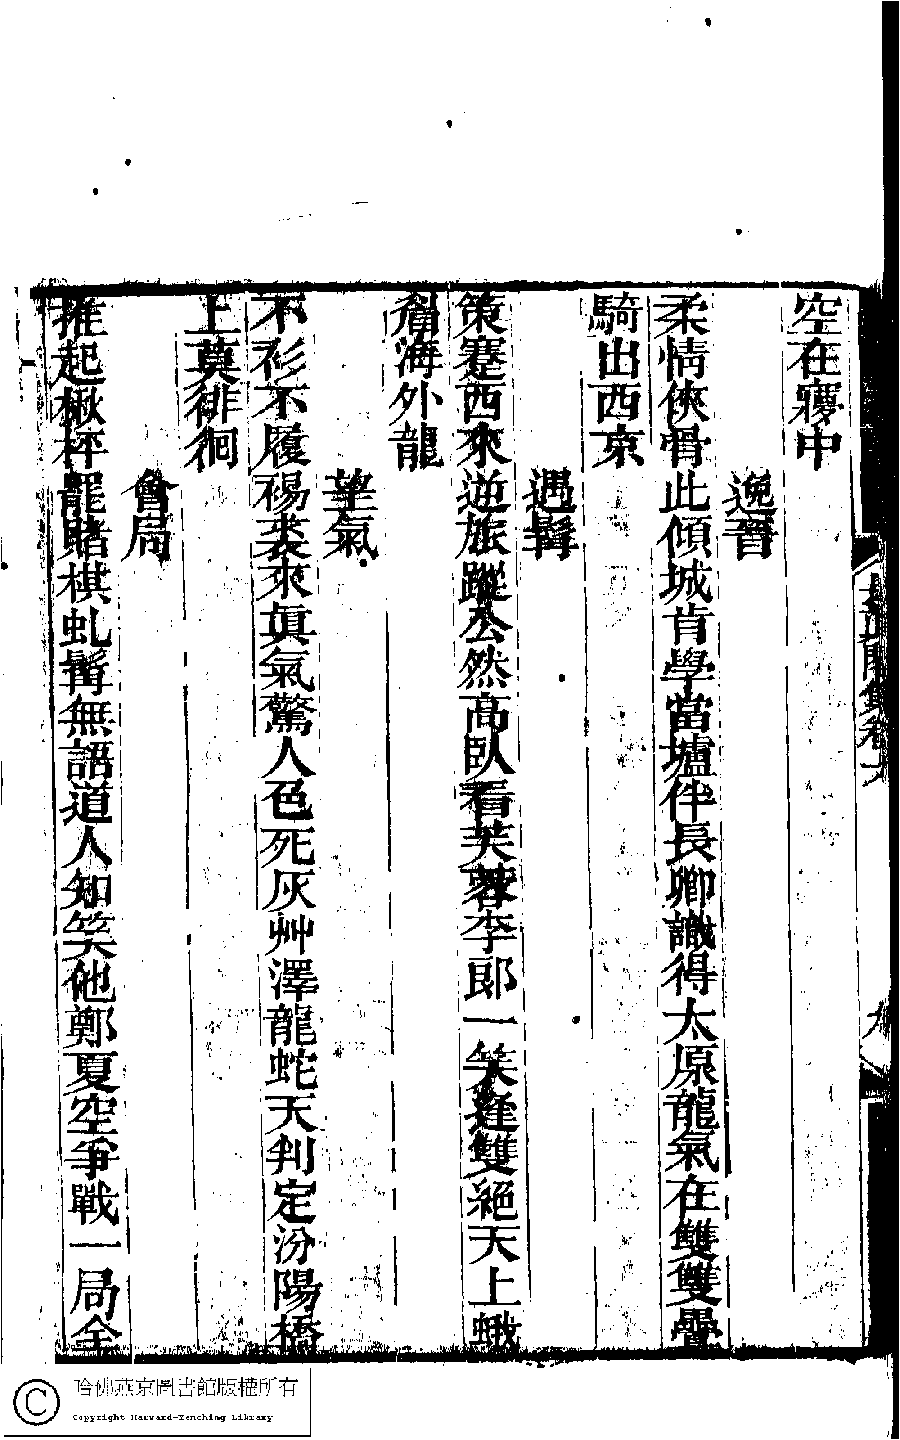 空在寢中
逸晉
柔情俠骨此傾城肯學當壚伴長卿識得太原龍氣在雙雙疊
騎出西京
遇髯
策蹇西來逆旅蹤公然高臥看芙蓉李郎一笑逢雙絕天上蛾
眉海外龍
望氣
不衫不履裼裘來眞氣驚人色死灰艸澤龍蛇天判定汾陽橋
上莫徘徊
會局
推起楸枰罷賭棋虬髯無語道人知笑他鄭夏空爭戰一局全
九
哈佛燕京圖書館版權所有
Copyright Harvard-Yenching Library